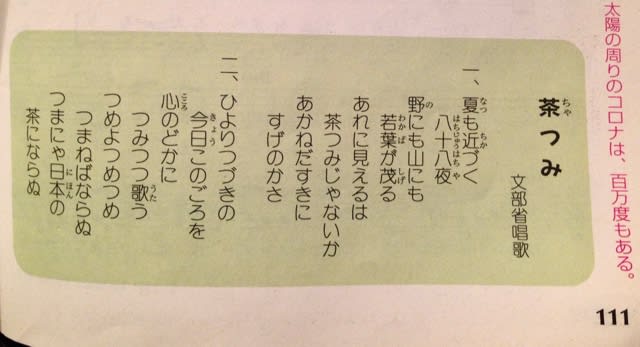 太陽の周りのコロナは、百万度もある。
茶つみ
ちゃ
文部省唱歌
一、夏も近づく
なつ ちか
八十八夜
はちじゅうはちや
野にも山にも
の
若葉が茂る
わかば しげ
あれに見えるは
茶つみじゃないか
あかねだすきに
すげのかさ
二、ひよりつづきの
今日このごろを
きょう
心のどかに
こころ
つみつつ歌う
うた
つめよつめつめ
つまねばならぬ
つまにゃ日本の
にほん
茶にならぬ
111